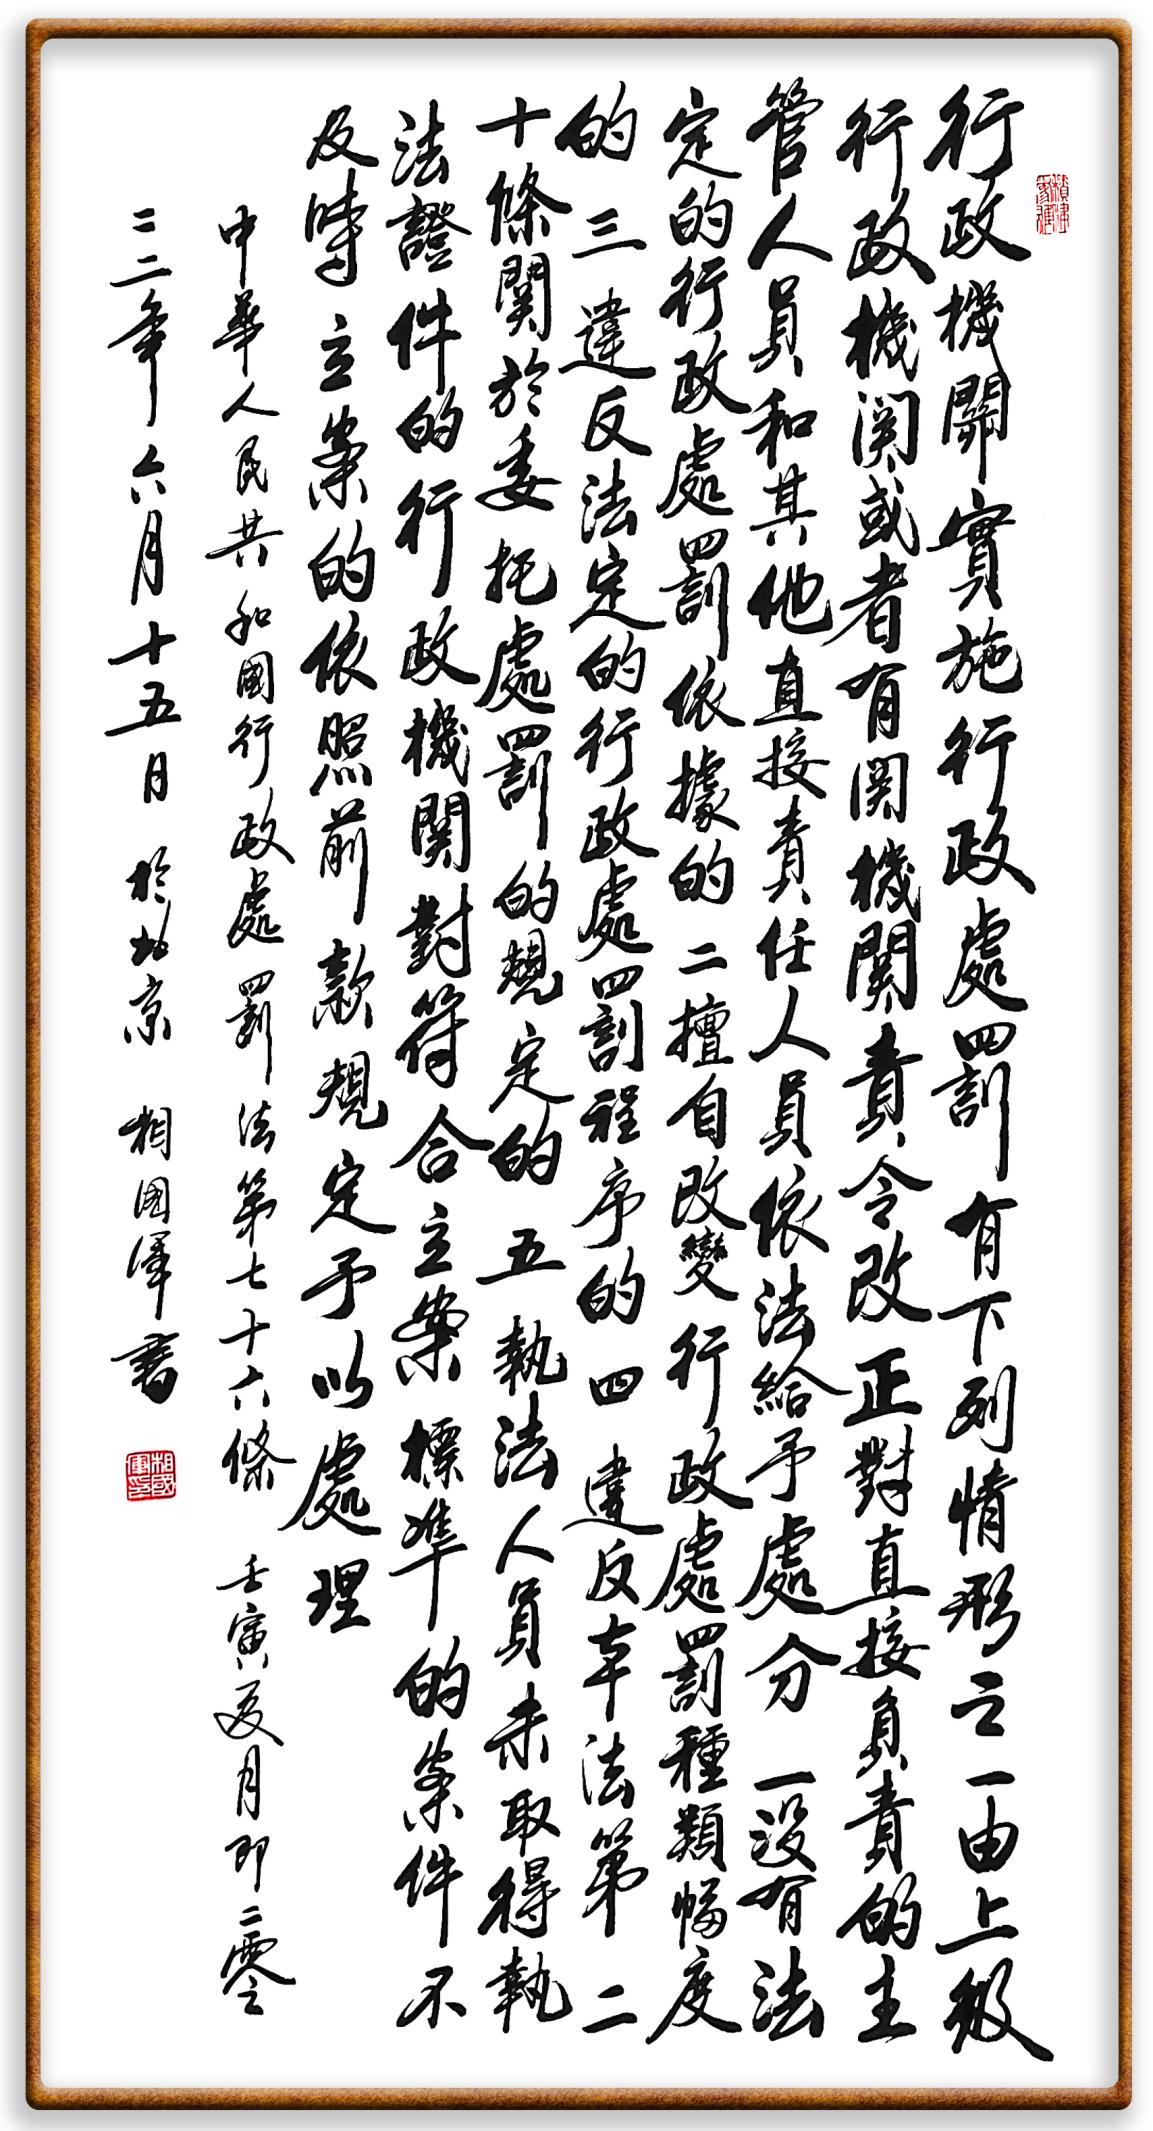 積健為雄
行政機關實施行政處罰有下列情形之一由上級
行政機関或者有関機関責令改正對直接負責的主
管人員和其他直接責任人員依法給予處分 一没有法
定的行政處罰依據的 二擅自改變行政處罰種類幅度
的 三 違反法定的行政處罰程序的 四 違反本法第二
十條関於委托處罰的規定的 五 執法人員未取得執
法證件的 行政機関對符合立案標準的案件不
及時立案的依照前款規定予以處理
中華人民共和國行政處罰法第七十六條 壬寅夏月即二零
二二年六月十五日 於北京 相國軍書
相國軍印